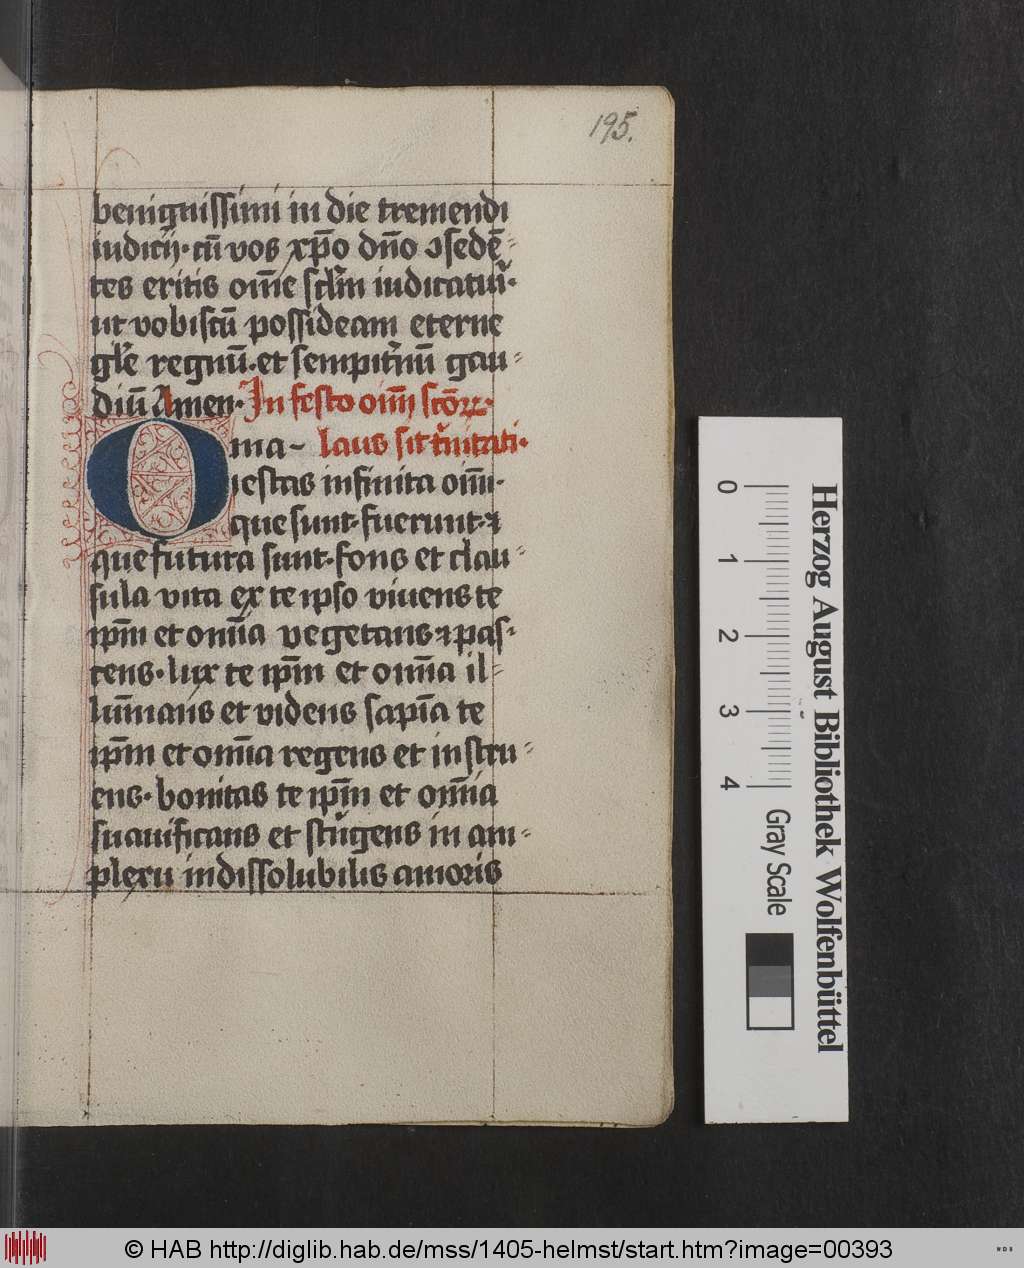 195.
benignissimi in die tremendi
iudicij · cū vos xp̄o dn̄o ꝯsedē⸗
tes eritis om̄e sc̄lm iudicatur̄ ·
ut vobiscū possideam eterne
gl̄e regnū · et sempit̄nū gau⸗
diū Amen · In festo oīm scōꝝ ·
Oma⸗ laus sit t̄nitati ·
iestas infinita oīm ·
que sunt · fuerunt · ⁊
que futura sunt · fons et clau⸗
sula vita ex te ipso viuens te
ipm̄ et om̄ia vegetans ⁊ pas⸗
cens · lux te ipm̄ et om̄ia il⸗
lumīans et videns sapīa te
ipm̄ et om̄ia regens et instru⸗
ens · bonitas te ipm̄ et om̄ia
suauificans et st̄ngens in am⸗
plexu indissolubilis amoris
0 1 2 3 4
Gray Scale
Herzog August Bibliothek Wolfenbüttel
© HAB http://diglib.hab.de/mss/1405-helmst/start.htm?image=00393
WDB